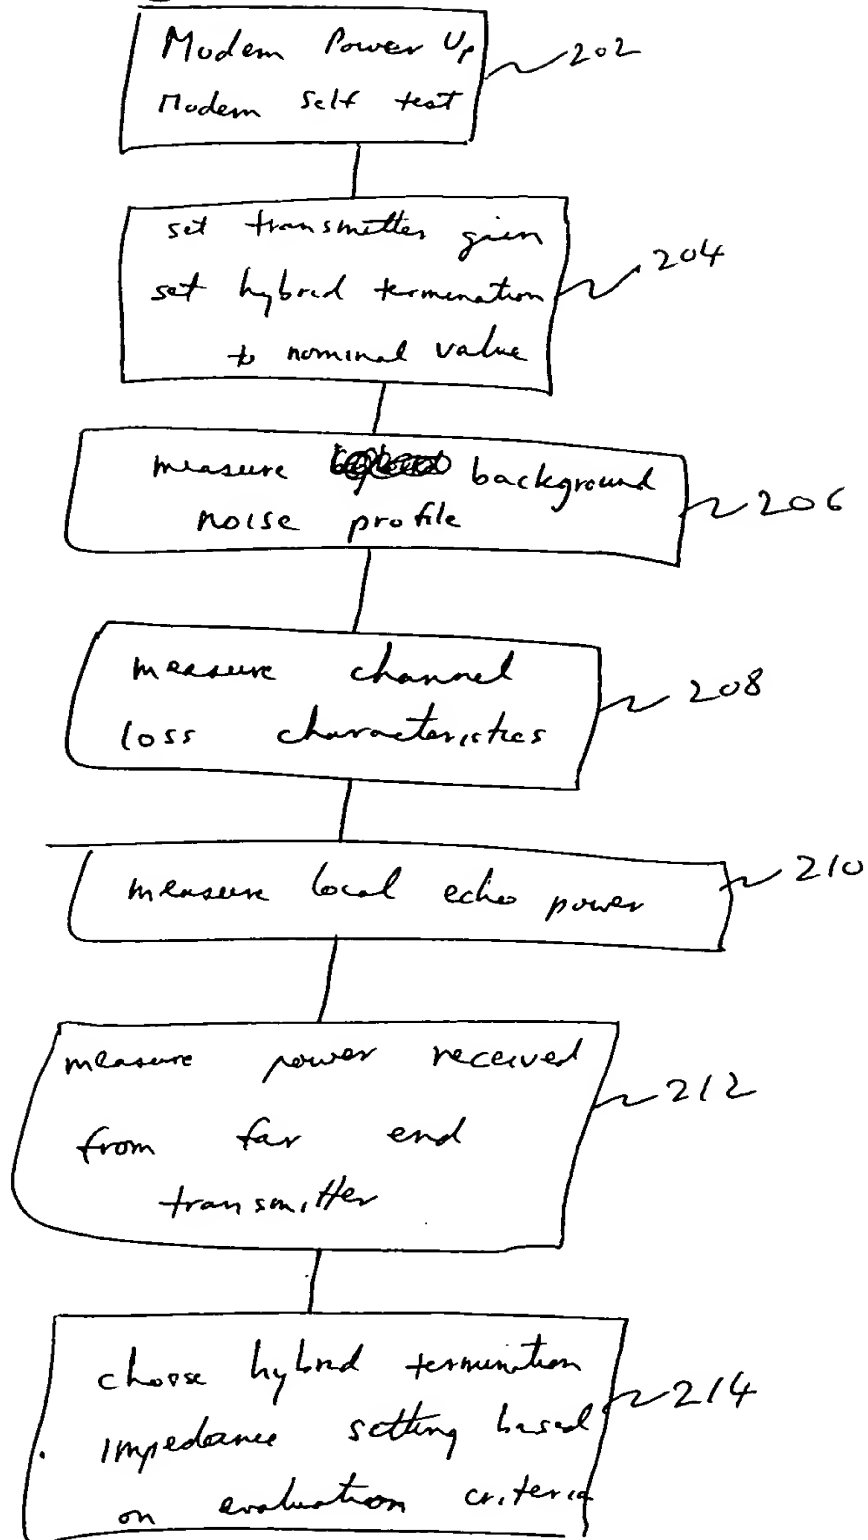 Modem Power Up
202
Modem Self test
set transmitter gain
204
set hybrid termination
to nominal value
measure background
206
noise profile
measure channel
208
loss characteristics
210
measure local echo power
measure power received
212
from far end
transmitter
choose hybrid termination
214
impedance setting based
on evaluation criteria